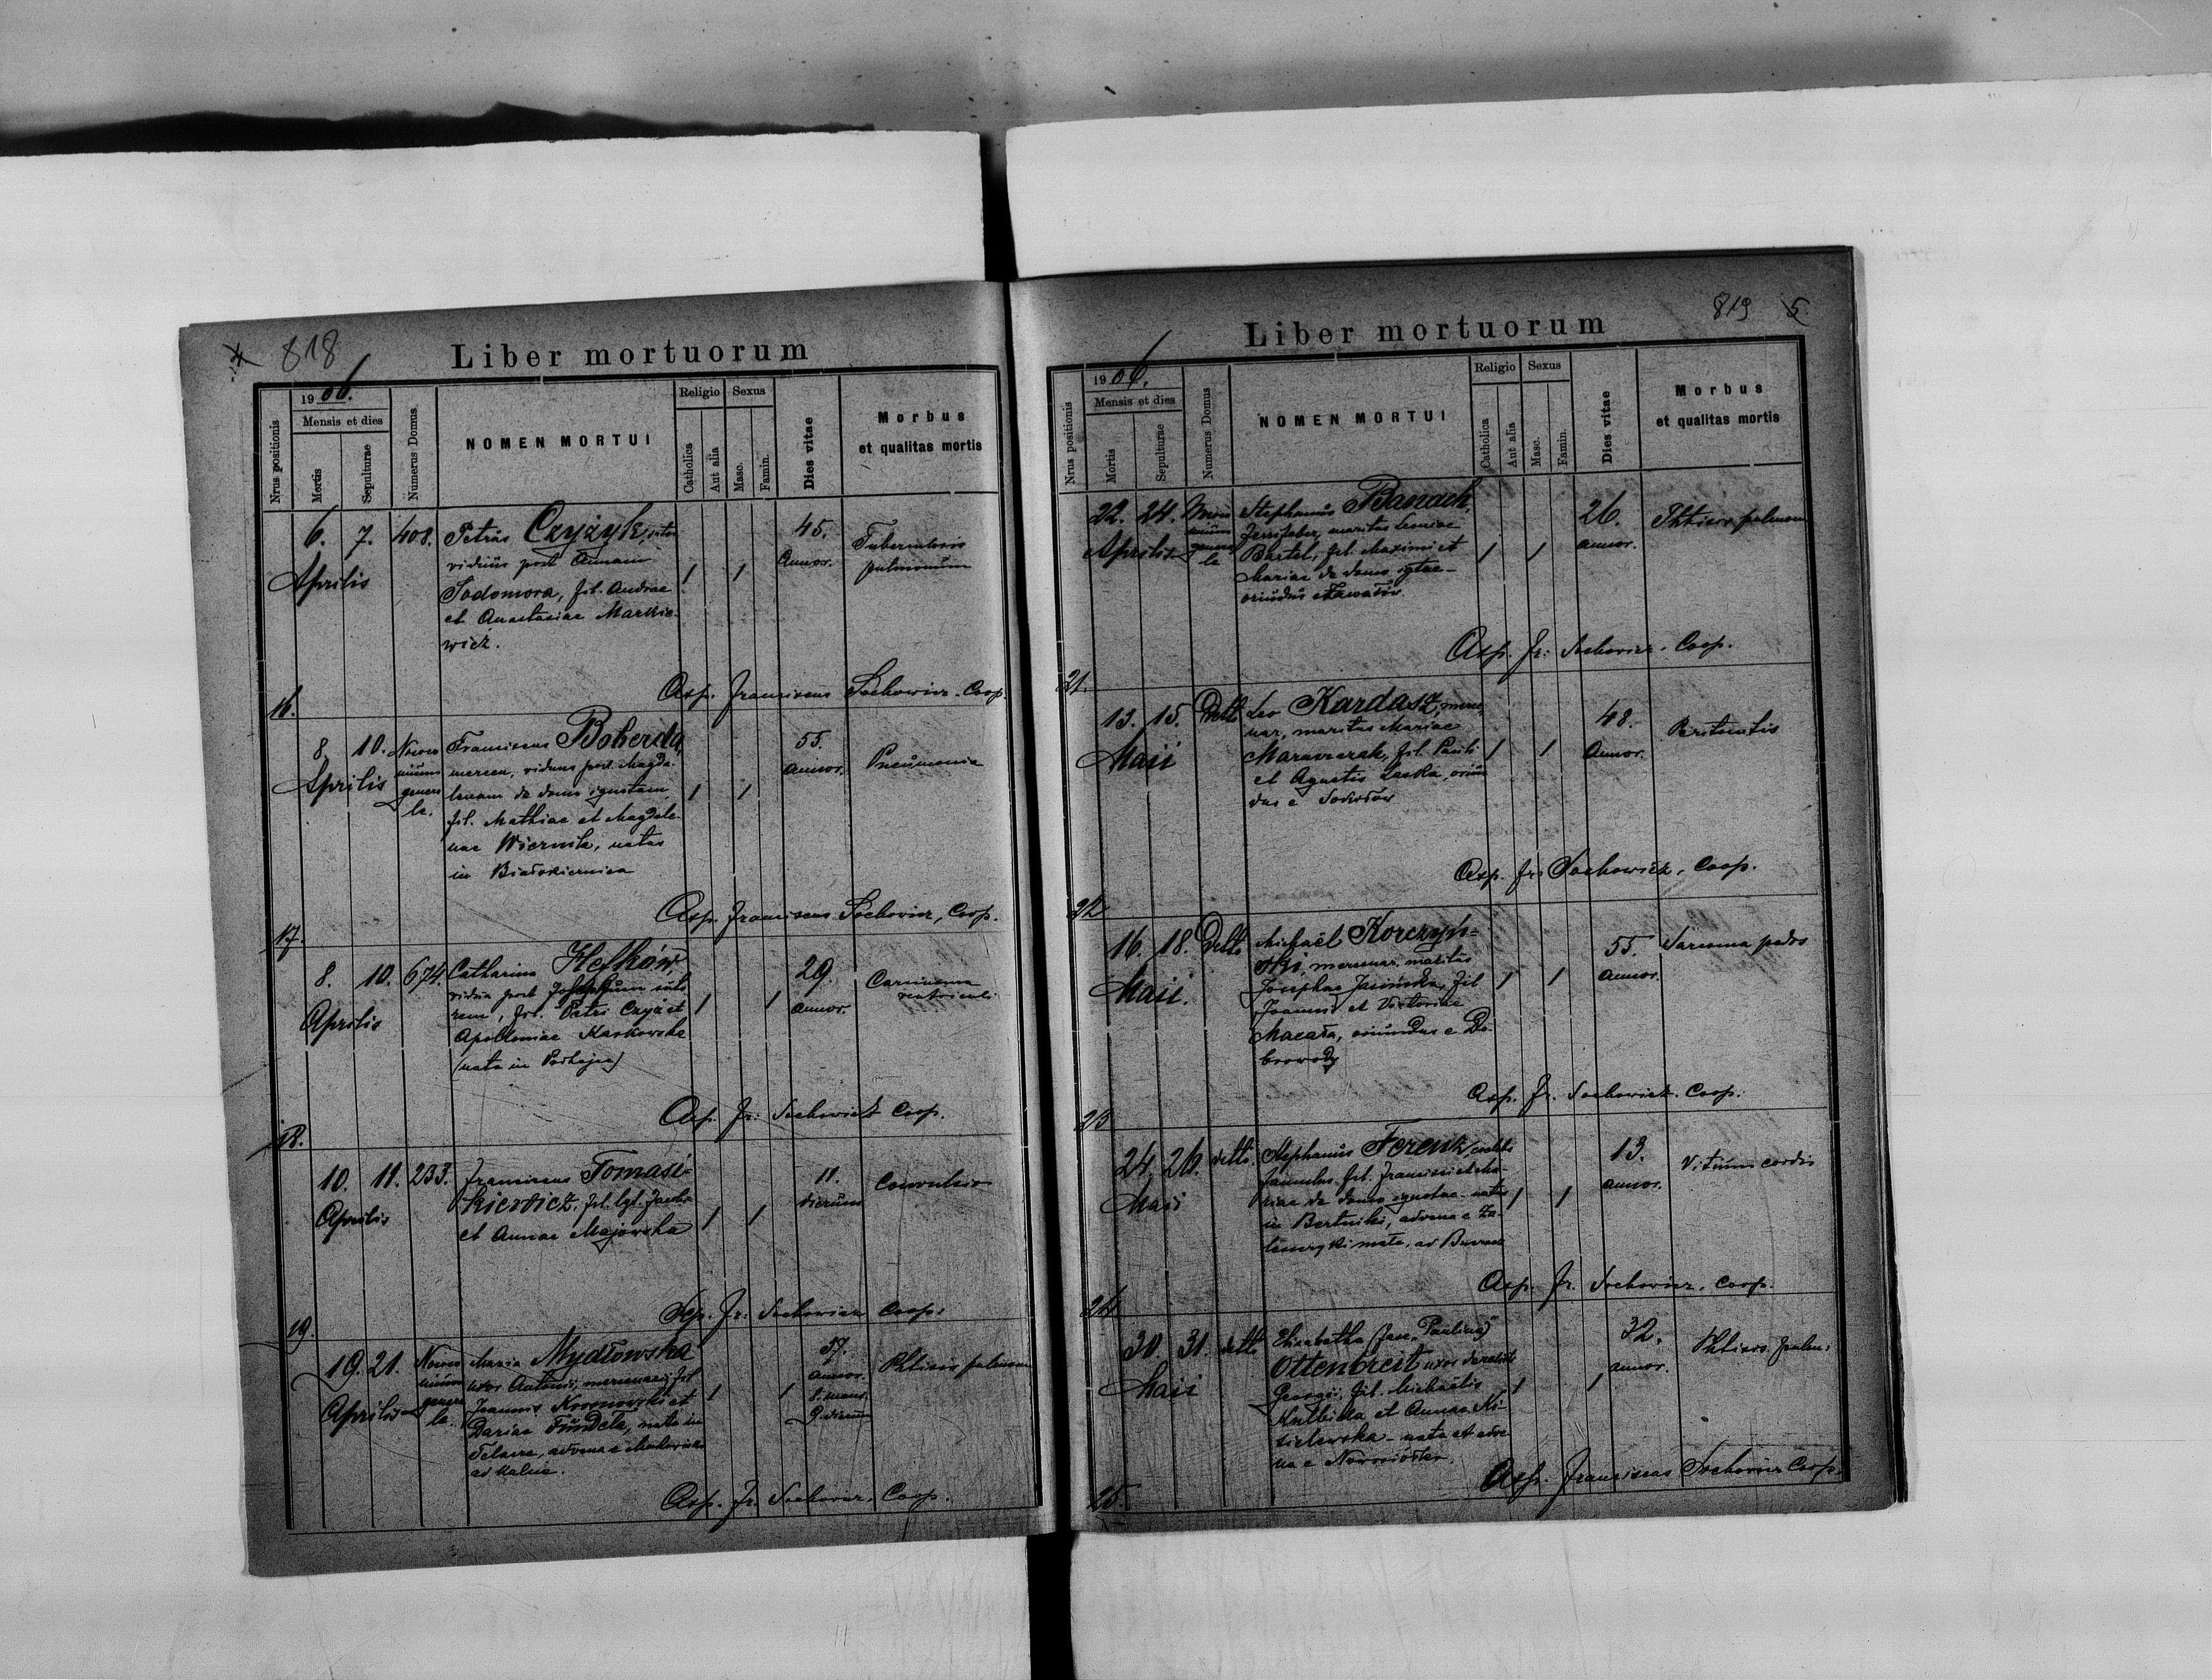 818
Liber mortuorum
1906.
Mensis et dies
Nrus positionis
Mortis
Sepulturae
Numerus Domus
NOMEN MORTUI
Religio
Catholica
Aut alia
Sexus
Masc.
Famin.
Dies vitae
Morbus
et qualitas mortis
6. 7. 408. Petrus Czyżyk, 1 1 45. Tuberculosis
Aprilis viduus post Annam annor. pulmonum
Sodomora, fil. Andreae
et Anastasiae Markie-
wicz.
Asp. Franciscus Sochowicz. Coop.
16.
8 10. Franciscus Boberda 1 1 55. Pneumonia
Aprilis mercen. viduus post Magda- annor.
genera- lenam de domo ignotam
le. fil. Mathiae et Magdale-
nae Wiernik, natus
in Białokiernica
Asp. Franciscus Sochowicz, Coop.
17.
8. 10. 674. Catharina Hefków, 1 1 29. Carcinoma
Aprilis vidua post Josephum annor. ventriculi
fil. Petri Czyż et
Apolloniae Karkowska
(nata in Podhajce)
Asp. Fr: Sochowicz Coop.
18.
10. 11. 233. Franciscus Tomasi- 1 1 11. Convulsio
Aprilis kiewicz, fil. lgt. Jacobi dierum
et Annae Majowska
Asp. Fr: Sochowicz Coop.
19.
19. 21. Maria Mydłowska 1 1 57. Phtisis pulmon
Aprilis uxor Antonii, mercenarii, fil annor.
genera- Joannis et 8. mens.
le. Dariae nata in 9. dierum
advena e
ad Kalne.
Asp. Fr. Sochowicz, Coop.
819 5.
Liber mortuorum
1906.
Mensis et dies
Nrus positionis
Mortis
Sepulturae
Numerus Domus
NOMEN MORTUI
Religio
Catholica
Aut alia
Sexus
Masc.
Famin.
Dies vitae
Morbus
et qualitas mortis
22. 24. Stephanus Banach, 1 1 26. Phtisis pulmon
Aprilis maritus annor.
genera- Bartel, fil. Maximi et
le Mariae de domo igtae
oriundus e Zawałów
Asp. Fr: Sochowicz. Coop.
21.
13. 15. Detto Leo Kardasz, merce- 1 1 48. Peritonitis
Maii nar, maritus Mariae annor.
fil. Pauli
et Agnetis Laska, oriun
dus e
Asp. Fr: Sochowicz, Coop.
22
16. 18. Detto Michaël Korczyń- 1 1 55. Sarcoma pedis
Maii. ski, mercenar. maritus annor.
Josephae Jasińska, fil
Joannis et Victoriae
Macała, oriundus e Do-
browody
Asp. Fr. Sochowicz. Coop.
23
24. 26. detto. Stephanus Ferenz, 1 1 13. Vitium cordis
Maii famulus, fil. Francisci et Ma- annor.
riae de domo ignotae natus
in Bertniki, advena e Za-
Asp. Fr. Sochowicz, Coop.
24
30. 31. detto Elisabetha (seu „Paulina”) 1 1 32. Phtisis pulm.
Maii Ottenbreit uxor annor.
Georgii, fil. Michaëlis
et Annae Ki-
sielewska – nata et adve-
na e Nowosiółka.
Asp. Franciscus Sochowicz Coop.
25.